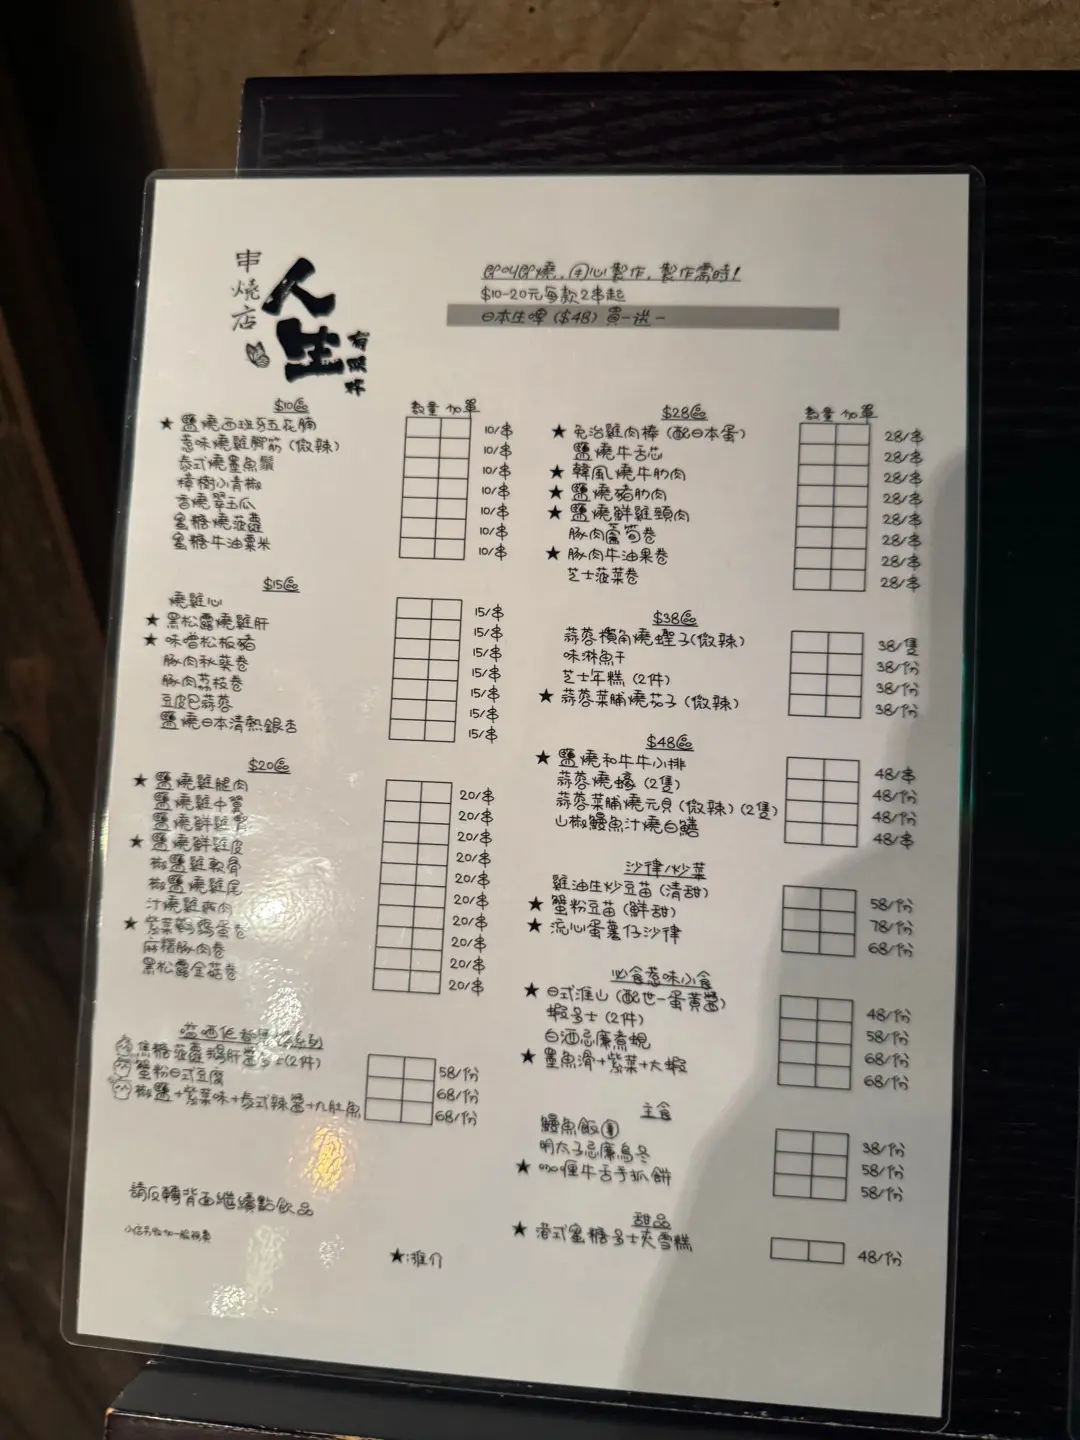 串燒店
人生
有限杯
即叫即燒，用心製作，製作需時！
$10-20元每款2串起
日本生啤 ($48) 買一送一
$10區
數量 加單
★ 鹽燒西班牙五花腩 10/串
惹味燒雞腳筋 (微辣) 10/串
泰式燒墨魚鬚 10/串
樟樹小青椒 10/串
香燒翠玉瓜 10/串
蜜糖燒菠蘿 10/串
蜜糖牛油粟米 10/串
$15區
燒雞心 15/串
★ 黑松露燒雞肝 15/串
★ 味噌松板豬 15/串
豚肉秋葵卷 15/串
豚肉荔枝卷 15/串
豆皮巴蒜蓉 15/串
鹽燒日本清熱銀杏 15/串
$20區
★ 鹽燒雞腿肉 20/串
鹽燒雞中翼 20/串
鹽燒鮮雞腎 20/串
★ 鹽燒鮮雞皮 20/串
椒鹽雞軟骨 20/串
椒鹽燒雞尾 20/串
汁燒雞 肉 20/串
★ 紫菜鵪鶉蛋卷 20/串
麻糬豚肉卷 20/串
黑松露金菇卷 20/串
焦糖菠蘿鵝肝醬多士(2件) 58/份
蟹粉日式豆腐 68/份
椒鹽+紫菜味+泰式辣醬+九肚魚 68/份
請反轉背面繼續點飲品
★:推介
$28區
數量 加單
★ 免治雞肉棒 (配日本蛋) 28/串
鹽燒牛舌芯 28/串
★ 韓風燒牛肋肉 28/串
★ 鹽燒豬肋肉 28/串
★ 鹽燒鮮雞頸肉 28/串
豚肉蘆筍卷 28/串
★ 豚肉牛油果卷 28/串
芝士菠菜卷 28/串
$38區
蒜蓉欖角燒蟶子(微辣) 38/隻
味淋魚干 38/份
芝士年糕 (2件) 38/份
★ 蒜蓉菜脯燒茄子 (微辣) 38/份
$48區
★ 鹽燒和牛牛小排 48/串
蒜蓉燒蠔 (2隻) 48/份
蒜蓉菜脯燒元貝 (微辣) (2隻) 48/份
山椒鰻魚汁燒白鱔 48/串
沙律/炒菜
雞油生炒豆苗 (清甜) 58/份
★ 蟹粉豆苗 (鮮甜) 78/份
★ 流心蛋薯仔沙律 68/份
必食惹味小食
★ 日式淮山 (配世一蛋黃醬) 48/份
蝦多士 (2件) 58/份
白酒忌廉煮蜆 68/份
★ 墨魚滑+紫菜+大蝦 68/份
主食
鰻魚飯 38/份
明太子忌廉烏冬 58/份
★ 咖喱牛舌手抓餅 58/份
甜品
★ 港式蜜糖多士夾雪糕 48/份